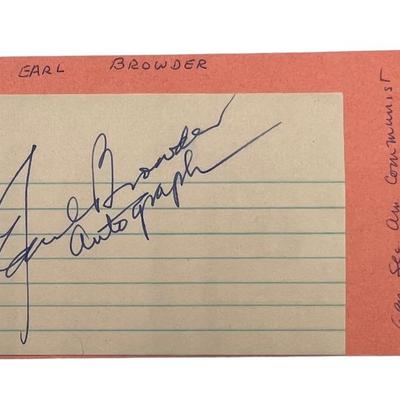 EARL BROWDER
Earl Browder
autograph
Gen Sec Am Communist